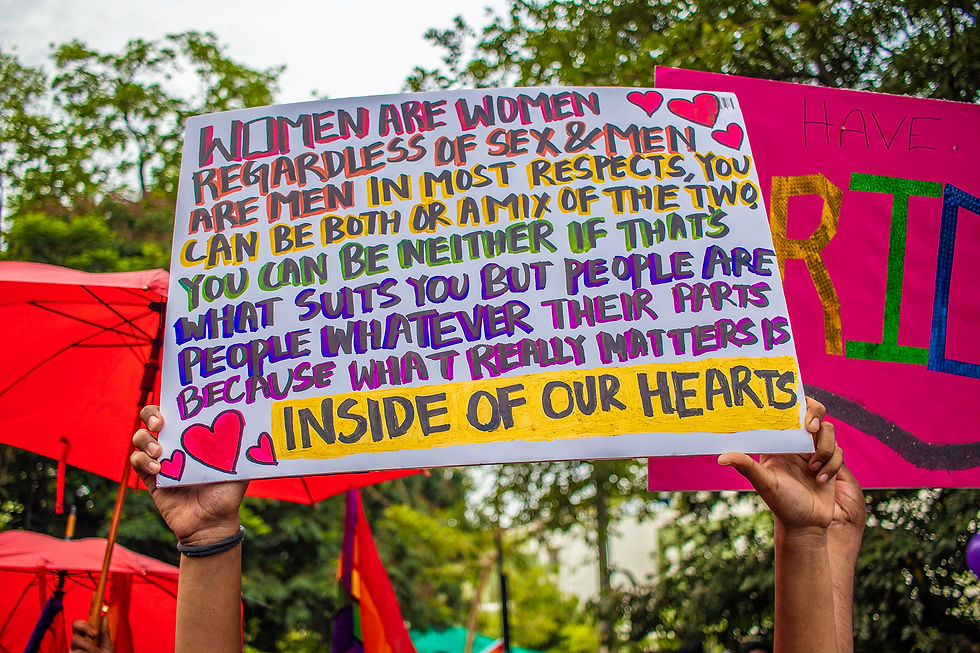 WOMEN ARE WOMEN
REGARDLESS OF SEX & MEN
ARE MEN IN MOST RESPECTS, YOU
CAN BE BOTH OR A MIX OF THE TWO,
YOU CAN BE NEITHER IF THAT'S
WHAT SUITS YOU BUT PEOPLE ARE
PEOPLE WHATEVER THEIR PARTS
BECAUSE WHAT REALLY MATTERS IS
INSIDE OF OUR HEARTS
HAVE